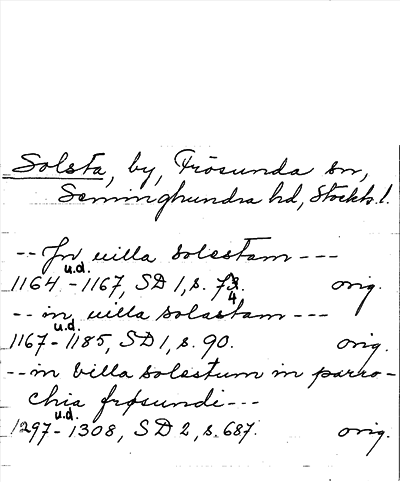 Solsta, by, Frösunda sn,
Seminghundra hd, Stockh. l.
-- In uilla solestam ---
1164 u.d. - 1167, SD 1, s. 74. orig.
-- in uilla solastam ---
1167 u.d. - 1185, SD 1, s. 90. orig.
-- in villa solestum in parro-
chia frøsundi ---
1297 u.d. - 1308, SD 2, s. 687. orig.